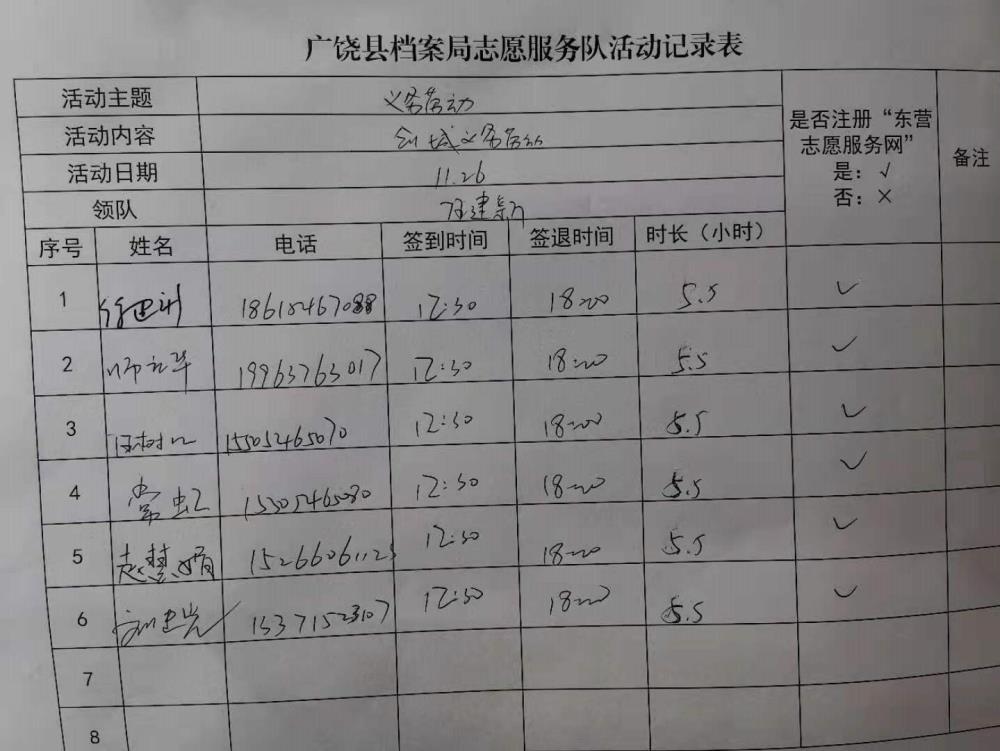 广饶县档案局志愿服务队活动记录表
活动主题 义务劳动
活动内容 创城义务劳动
活动日期 11.26
领队
是否注册“东营志愿服务网”
是：√
否：×
备注
序号 姓名 电话 签到时间 签退时间 时长（小时）
1 12:30 18:00 5.5 ✓
2 19963763017 12:30 18:00 5.5 ✓
3 15505465070 12:30 18:00 5.5 ✓
4 常虹 12:30 18:00 5.5 ✓
5 赵慧娟 12:30 18:00 5.5 ✓
6 15371523107 12:30 18:00 5.5 ✓
7
8